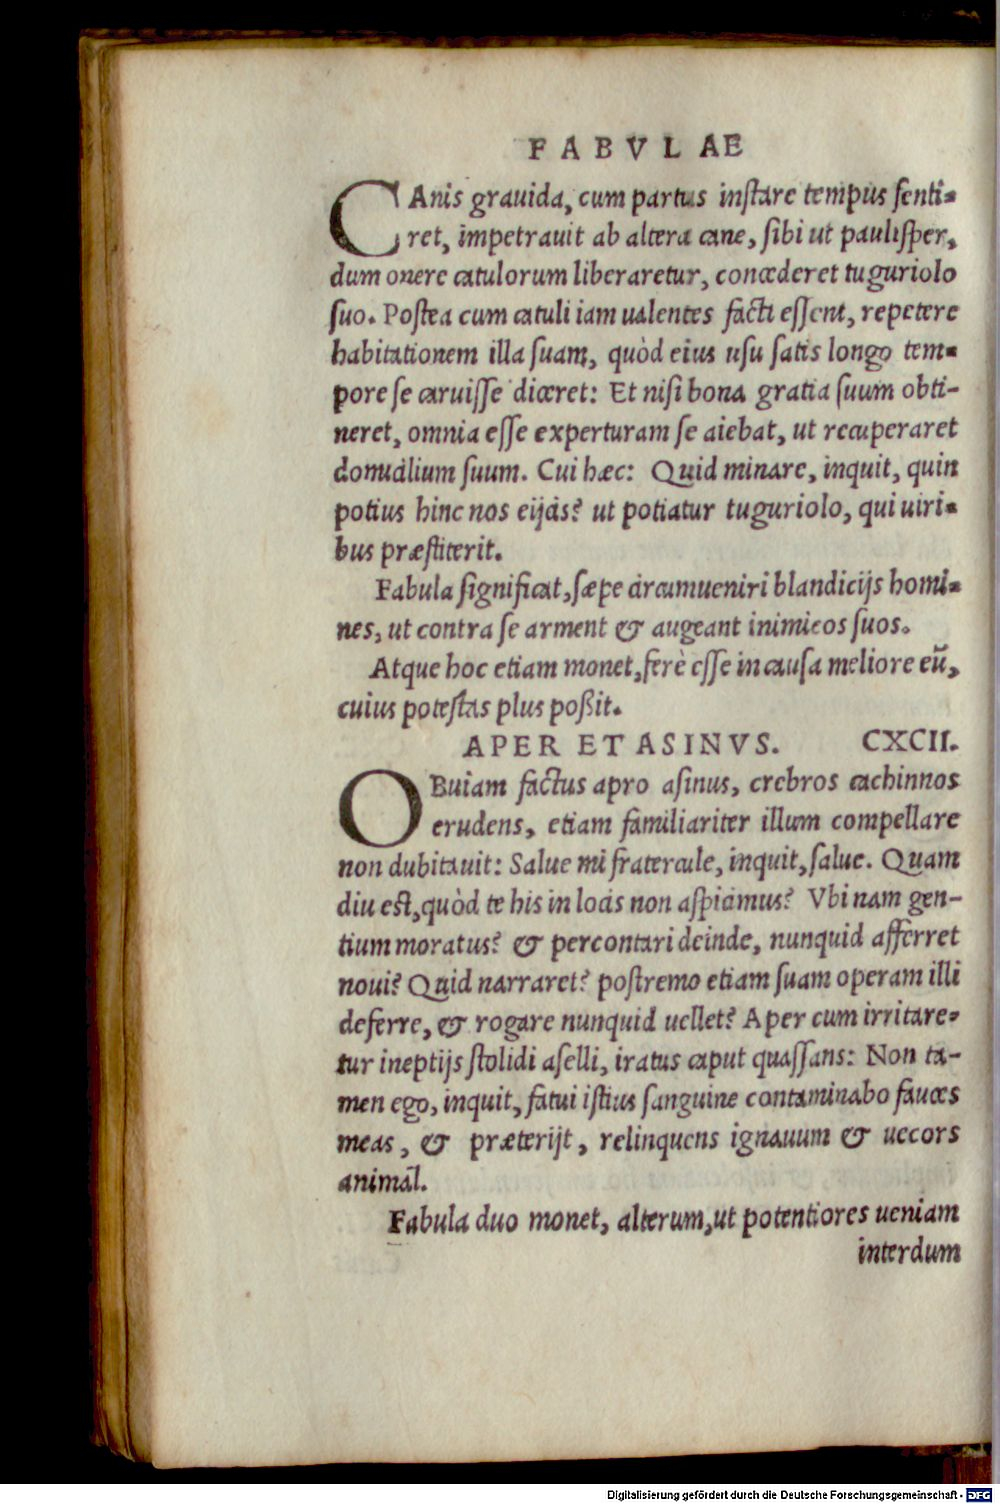 FABVLAE
CAnis grauida, cum partus instare tempus senti-
ret, impetrauit ab altera cane, sibi ut paulisper,
dum onere catulorum liberaretur, concederet tuguriolo
suo. Postea cum catuli iam ualentes facti essent, repetere
habitationem illa suam, quòd eius usu satis longo tem-
pore se caruisse diceret: Et nisi bona gratia suum obti-
neret, omnia esse experturam se aiebat, ut recuperaret
domicilium suum. Cui hæc: Quid minare, inquit, quin
potius hinc nos eijcis? ut potiatur tuguriolo, qui uiri-
bus præstiterit.
Fabula significat, sæpe circumueniri blandicijs homi-
nes, ut contra se arment & augeant inimicos suos.
Atque hoc etiam monet, ferè esse in causa meliore eũ,
cuius potestas plus poßit.
APER ET ASINVS. CXCII.
OBuiam factus apro asinus, crebros cachinnos
erudens, etiam familiariter illum compellare
non dubitauit: Salue mi fratercule, inquit, salue. Quam
diu est, quòd te his in locis non aspicimus? Vbi nam gen-
tium moratus? & percontari deinde, nunquid afferret
noui? Quid narraret? postremo etiam suam operam illi
deferre, & rogare nunquid uellet? Aper cum irritare-
tur ineptijs stolidi aselli, iratus caput quassans: Non ta-
men ego, inquit, fatui istius sanguine contaminabo fauces
meas, & præterijt, relinquens ignauum & uecors
animal.
Fabula duo monet, alterum, ut potentiores ueniam
interdum
Digitalisierung gefördert durch die Deutsche Forschungsgemeinschaft - DFG